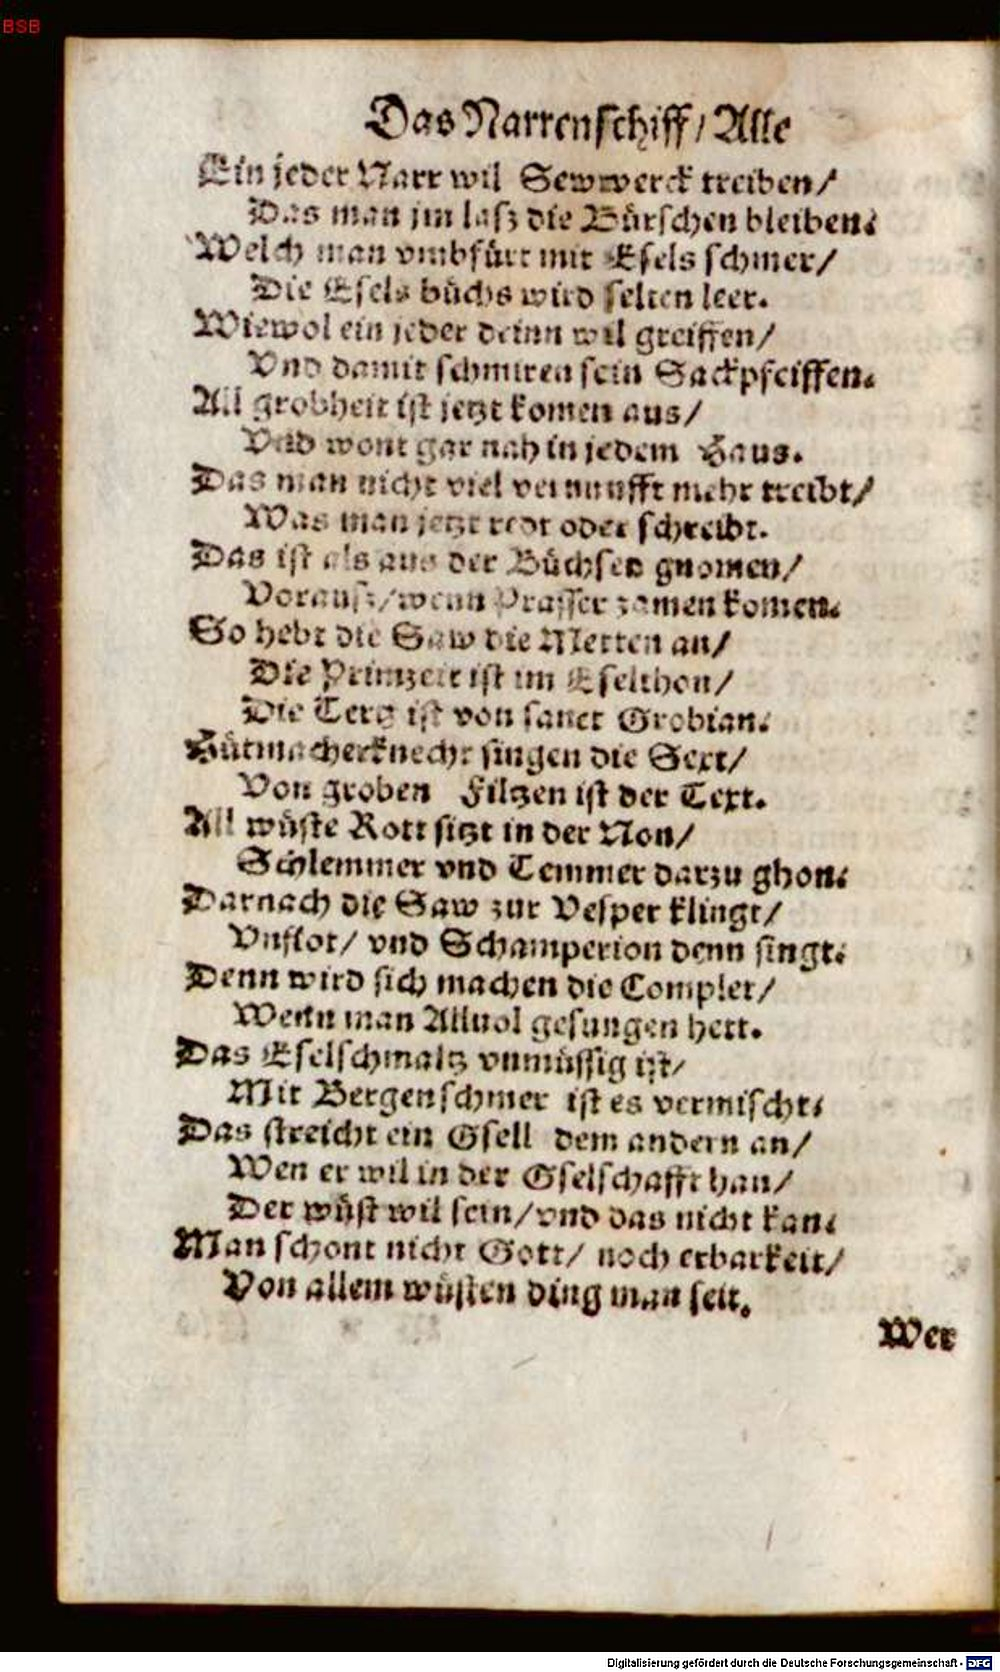 BSB
Das Narrenschiff / Alle
Ein jeder Narr wil Sewwerck treiben /
Das man jm lasz die Bürschen bleiben.
Welch man vmbfürt mit Esels schmer /
Die Esels büchs wird selten leer.
Wiewol ein jeder drinn wil greiffen /
Vnd damit schmiren sein Sackpfeiffen.
All grobheit ist jetzt komen aus /
Vnd wont gar nah in jedem Haus.
Das man nicht viel vernunfft mehr treibt /
Was man jetzt redt oder schreibt.
Das ist als aus der Büchsen gnomen /
Vorausz / wenn Prasser zamen komen.
So hebt die Saw die Metten an /
Die Primzeit ist im Eselthon /
Die Tertz ist von sanct Grobian.
Hütmacherknecht singen die Sext /
Von groben Filtzen ist der Text.
All wüste Rott sitzt in der Non /
Schlemmer vnd Temmer darzu ghon.
Darnach die Saw zur Vesper klingt /
Vnflot / vnd Schamperion denn singt.
Denn wird sich machen die Complet /
Wenn man Alluol gesungen hett.
Das Eselschmaltz vnmüssig ist /
Mit Bergenschmer ist es vermischt.
Das streicht ein Gsell dem andern an /
Wen er wil in der Gselschafft han /
Der wüst wil sein / vnd das nicht kan.
Man schont nicht Gott / noch erbarkeit /
Von allem wüsten ding man seit.
Wer
Digitalisierung gefördert durch die Deutsche Forschungsgemeinschaft - DFG